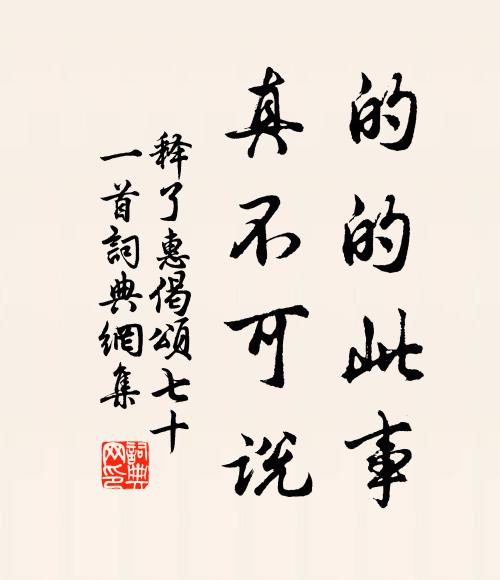 的的此事
真不可说
释了惠偈颂七十
一首詞典網集
詞典網印